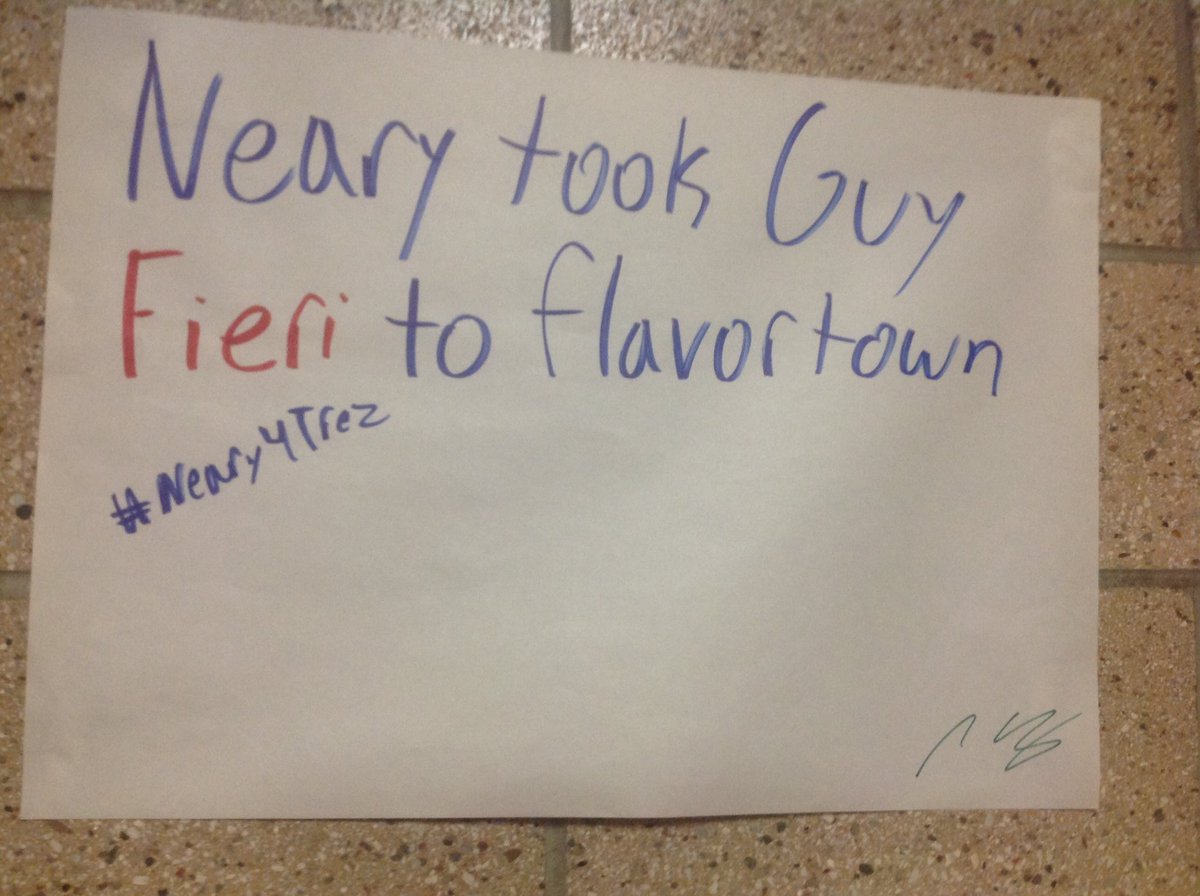 Neary took Guy
Fieri to flavortown
#Neary4Trez